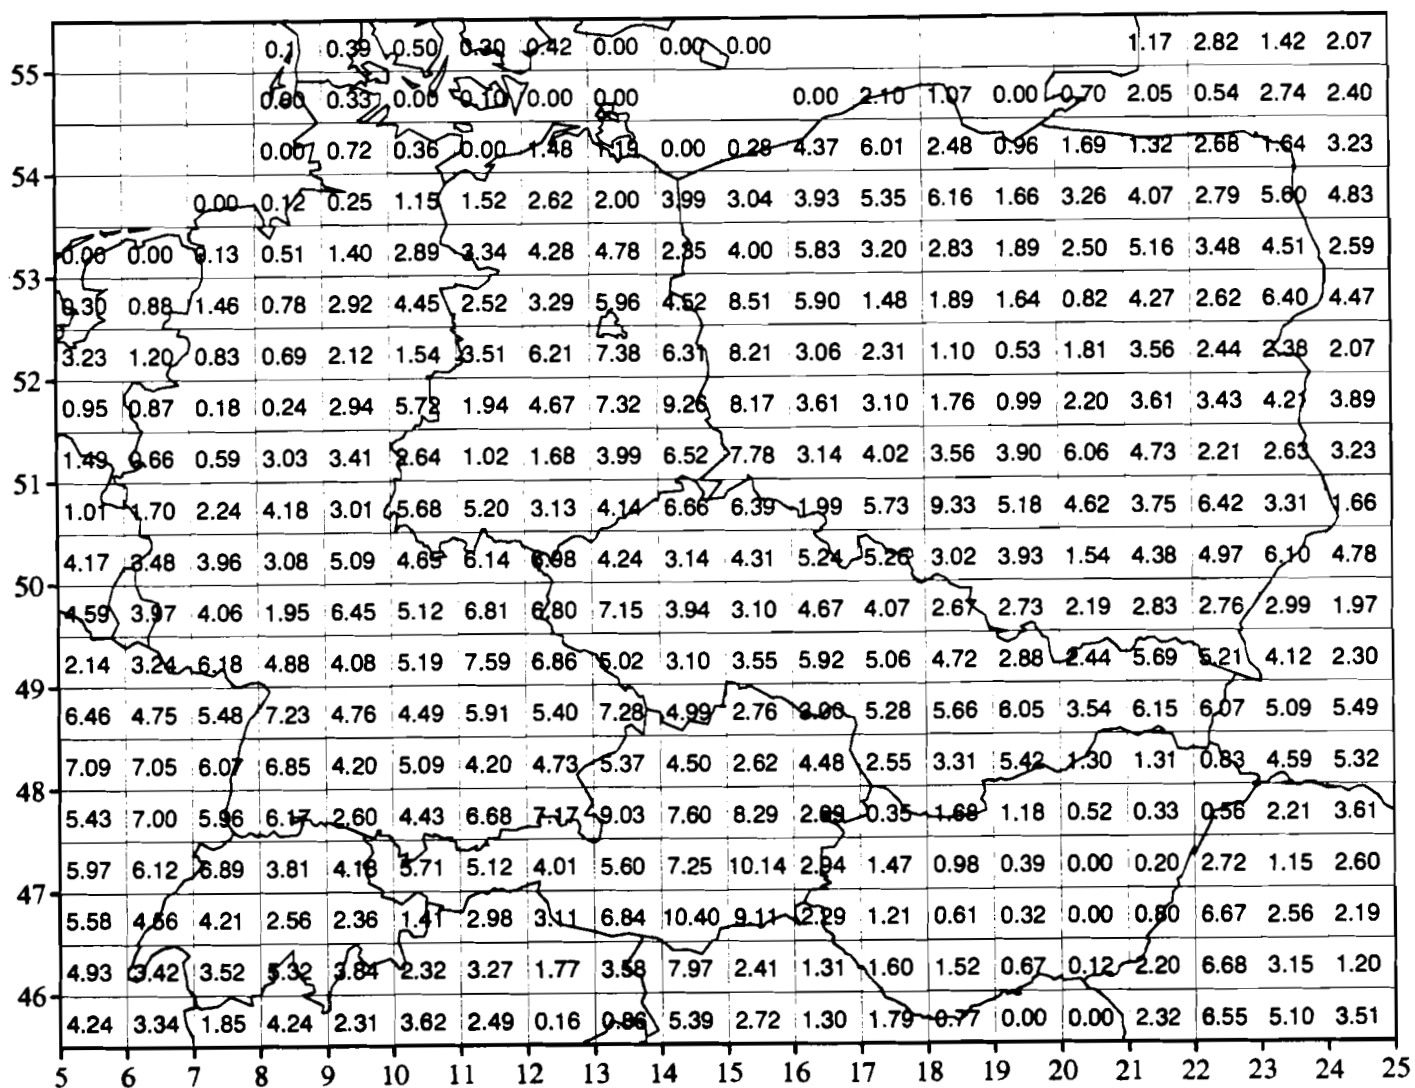 0.1 0.39 0.50 0.30 0.42 0.00 0.00 0.00 1.17 2.82 1.42 2.07
55
0.00 0.33 0.00 0.10 0.00 0.00 0.00 2.10 1.07 0.00 0.70 2.05 0.54 2.74 2.40
0.00 0.72 0.36 0.00 1.48 1.19 0.00 0.28 4.37 6.01 2.48 0.96 1.69 1.32 2.68 1.64 3.23
54
0.00 0.12 0.25 1.15 1.52 2.62 2.00 3.99 3.04 3.93 5.35 6.16 1.66 3.26 4.07 2.79 5.60 4.83
0.00 0.00 0.13 0.51 1.40 2.89 3.34 4.28 4.78 2.85 4.00 5.83 3.20 2.83 1.89 2.50 5.16 3.48 4.51 2.59
53
0.30 0.88 1.46 0.78 2.92 4.45 2.52 3.29 5.96 4.52 8.51 5.90 1.48 1.89 1.64 0.82 4.27 2.62 6.40 4.47
3.23 1.20 0.83 0.69 2.12 1.54 3.51 6.21 7.38 6.31 8.21 3.06 2.31 1.10 0.53 1.81 3.56 2.44 2.38 2.07
52
0.95 0.87 0.18 0.24 2.94 5.72 1.94 4.67 7.32 9.26 8.17 3.61 3.10 1.76 0.99 2.20 3.61 3.43 4.21 3.89
1.49 0.66 0.59 3.03 3.41 2.64 1.02 1.68 3.99 6.52 7.78 3.14 4.02 3.56 3.90 6.06 4.73 2.21 2.63 3.23
51
1.01 1.70 2.24 4.18 3.01 5.68 5.20 3.13 4.14 6.66 6.39 1.99 5.73 9.33 5.18 4.62 3.75 6.42 3.31 1.66
4.17 3.48 3.96 3.08 5.09 4.65 6.14 6.98 4.24 3.14 4.31 5.24 5.26 3.02 3.93 1.54 4.38 4.97 6.10 4.78
50
4.59 3.97 4.06 1.95 6.45 5.12 6.81 6.80 7.15 3.94 3.10 4.67 4.07 2.67 2.73 2.19 2.83 2.76 2.99 1.97
2.14 3.24 6.18 4.88 4.08 5.19 7.59 6.86 5.02 3.10 3.55 5.92 5.06 4.72 2.88 2.44 5.69 5.21 4.12 2.30
49
6.46 4.75 5.48 7.23 4.76 4.49 5.91 5.40 7.28 4.99 2.76 3.00 5.28 5.66 6.05 3.54 6.15 6.07 5.09 5.49
7.09 7.05 6.07 6.85 4.20 5.09 4.20 4.73 5.37 4.50 2.62 4.48 2.55 3.31 5.42 1.30 1.31 0.83 4.59 5.32
48
5.43 7.00 5.96 6.17 2.60 4.43 6.68 7.17 9.03 7.60 8.29 0.35 1.68 1.18 0.52 0.33 0.56 2.21 3.61
5.97 6.12 6.89 3.81 4.18 5.71 5.12 4.01 5.60 7.25 10.14 2.94 1.47 0.98 0.39 0.00 0.20 2.72 1.15 2.60
47
5.58 4.56 4.21 2.56 2.36 1.41 2.98 3.11 6.84 10.40 9.11 2.29 1.21 0.61 0.32 0.00 0.80 6.67 2.56 2.19
4.93 3.42 3.52 5.32 3.84 2.32 3.27 1.77 3.58 7.97 2.41 1.31 1.60 1.52 0.67 0.12 2.20 6.68 3.15 1.20
46
4.24 3.34 1.85 4.24 2.31 3.62 2.49 0.16 0.86 5.39 2.72 1.30 1.79 0.77 0.00 0.00 2.32 6.55 5.10 3.51
5 6 7 8 9 10 11 12 13 14 15 16 17 18 19 20 21 22 23 24 25